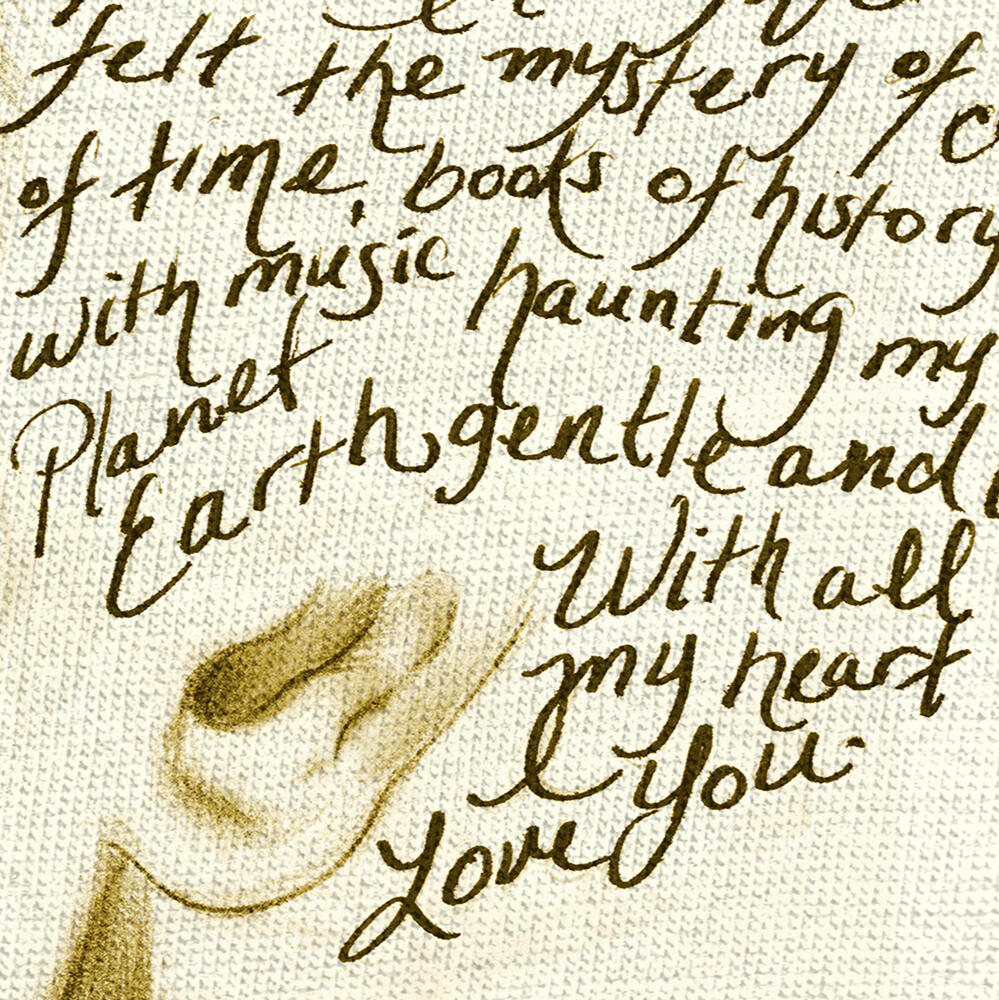 felt the mystery of
of time, books of history
with music haunting my
Planet
Earth gentle and
With all
my heart
I
Love You.